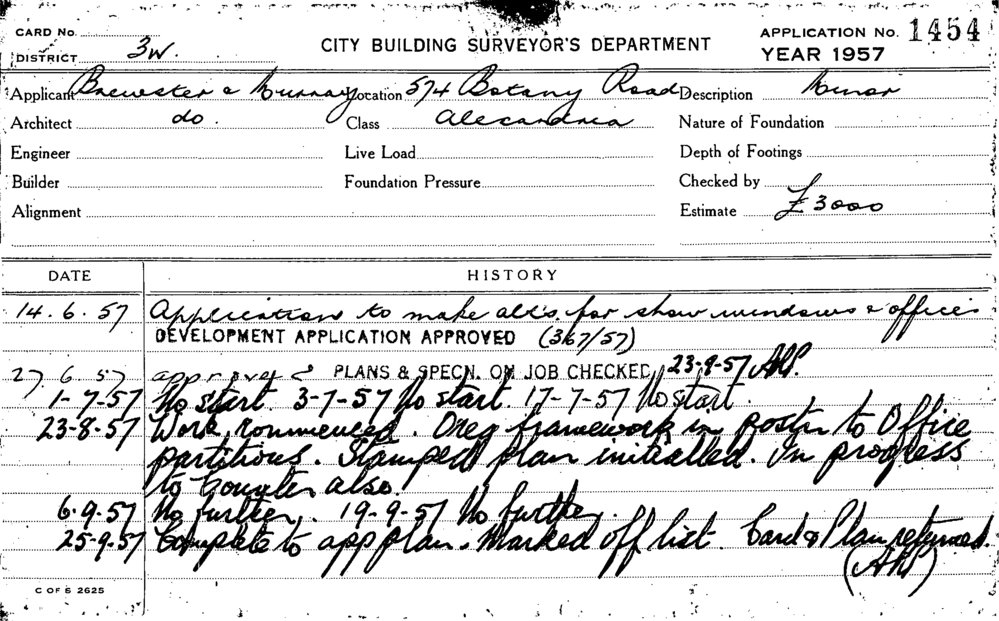 CARD No.
DISTRICT 3W.
CITY BUILDING SURVEYOR'S DEPARTMENT
APPLICATION No. 1454
YEAR 1957
Applicant Brewster & Murray Location 574 Botany Road Description Minor
Architect do. Class Alexandria Nature of Foundation
Engineer Live Load Depth of Footings
Builder Foundation Pressure Checked by
Alignment Estimate £3000
DATE HISTORY
14.6.57 Application to make alts. for show windows & offices
DEVELOPMENT APPLICATION APPROVED (367/57)
27.6.57 approved PLANS & SPECN. ON JOB CHECKED 23-9-57
1-7-57 No start. 3-7-57 No start. 17-7-57 No start.
23-8-57 Work commenced. Oreg framework in postn to Office
partitions. Stamped plan initialled. In progress
to Counter also.
6.9.57 No further. 19-9-57 No further.
25-9-57 Complete to app plan. Marked off list. Card & Plan returned.
C OF S 2625